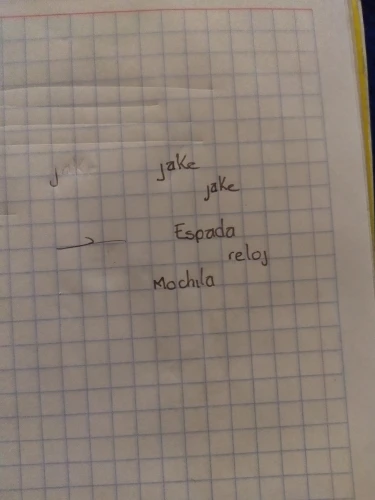 jake jake
jake
Espada
reloj
Mochila